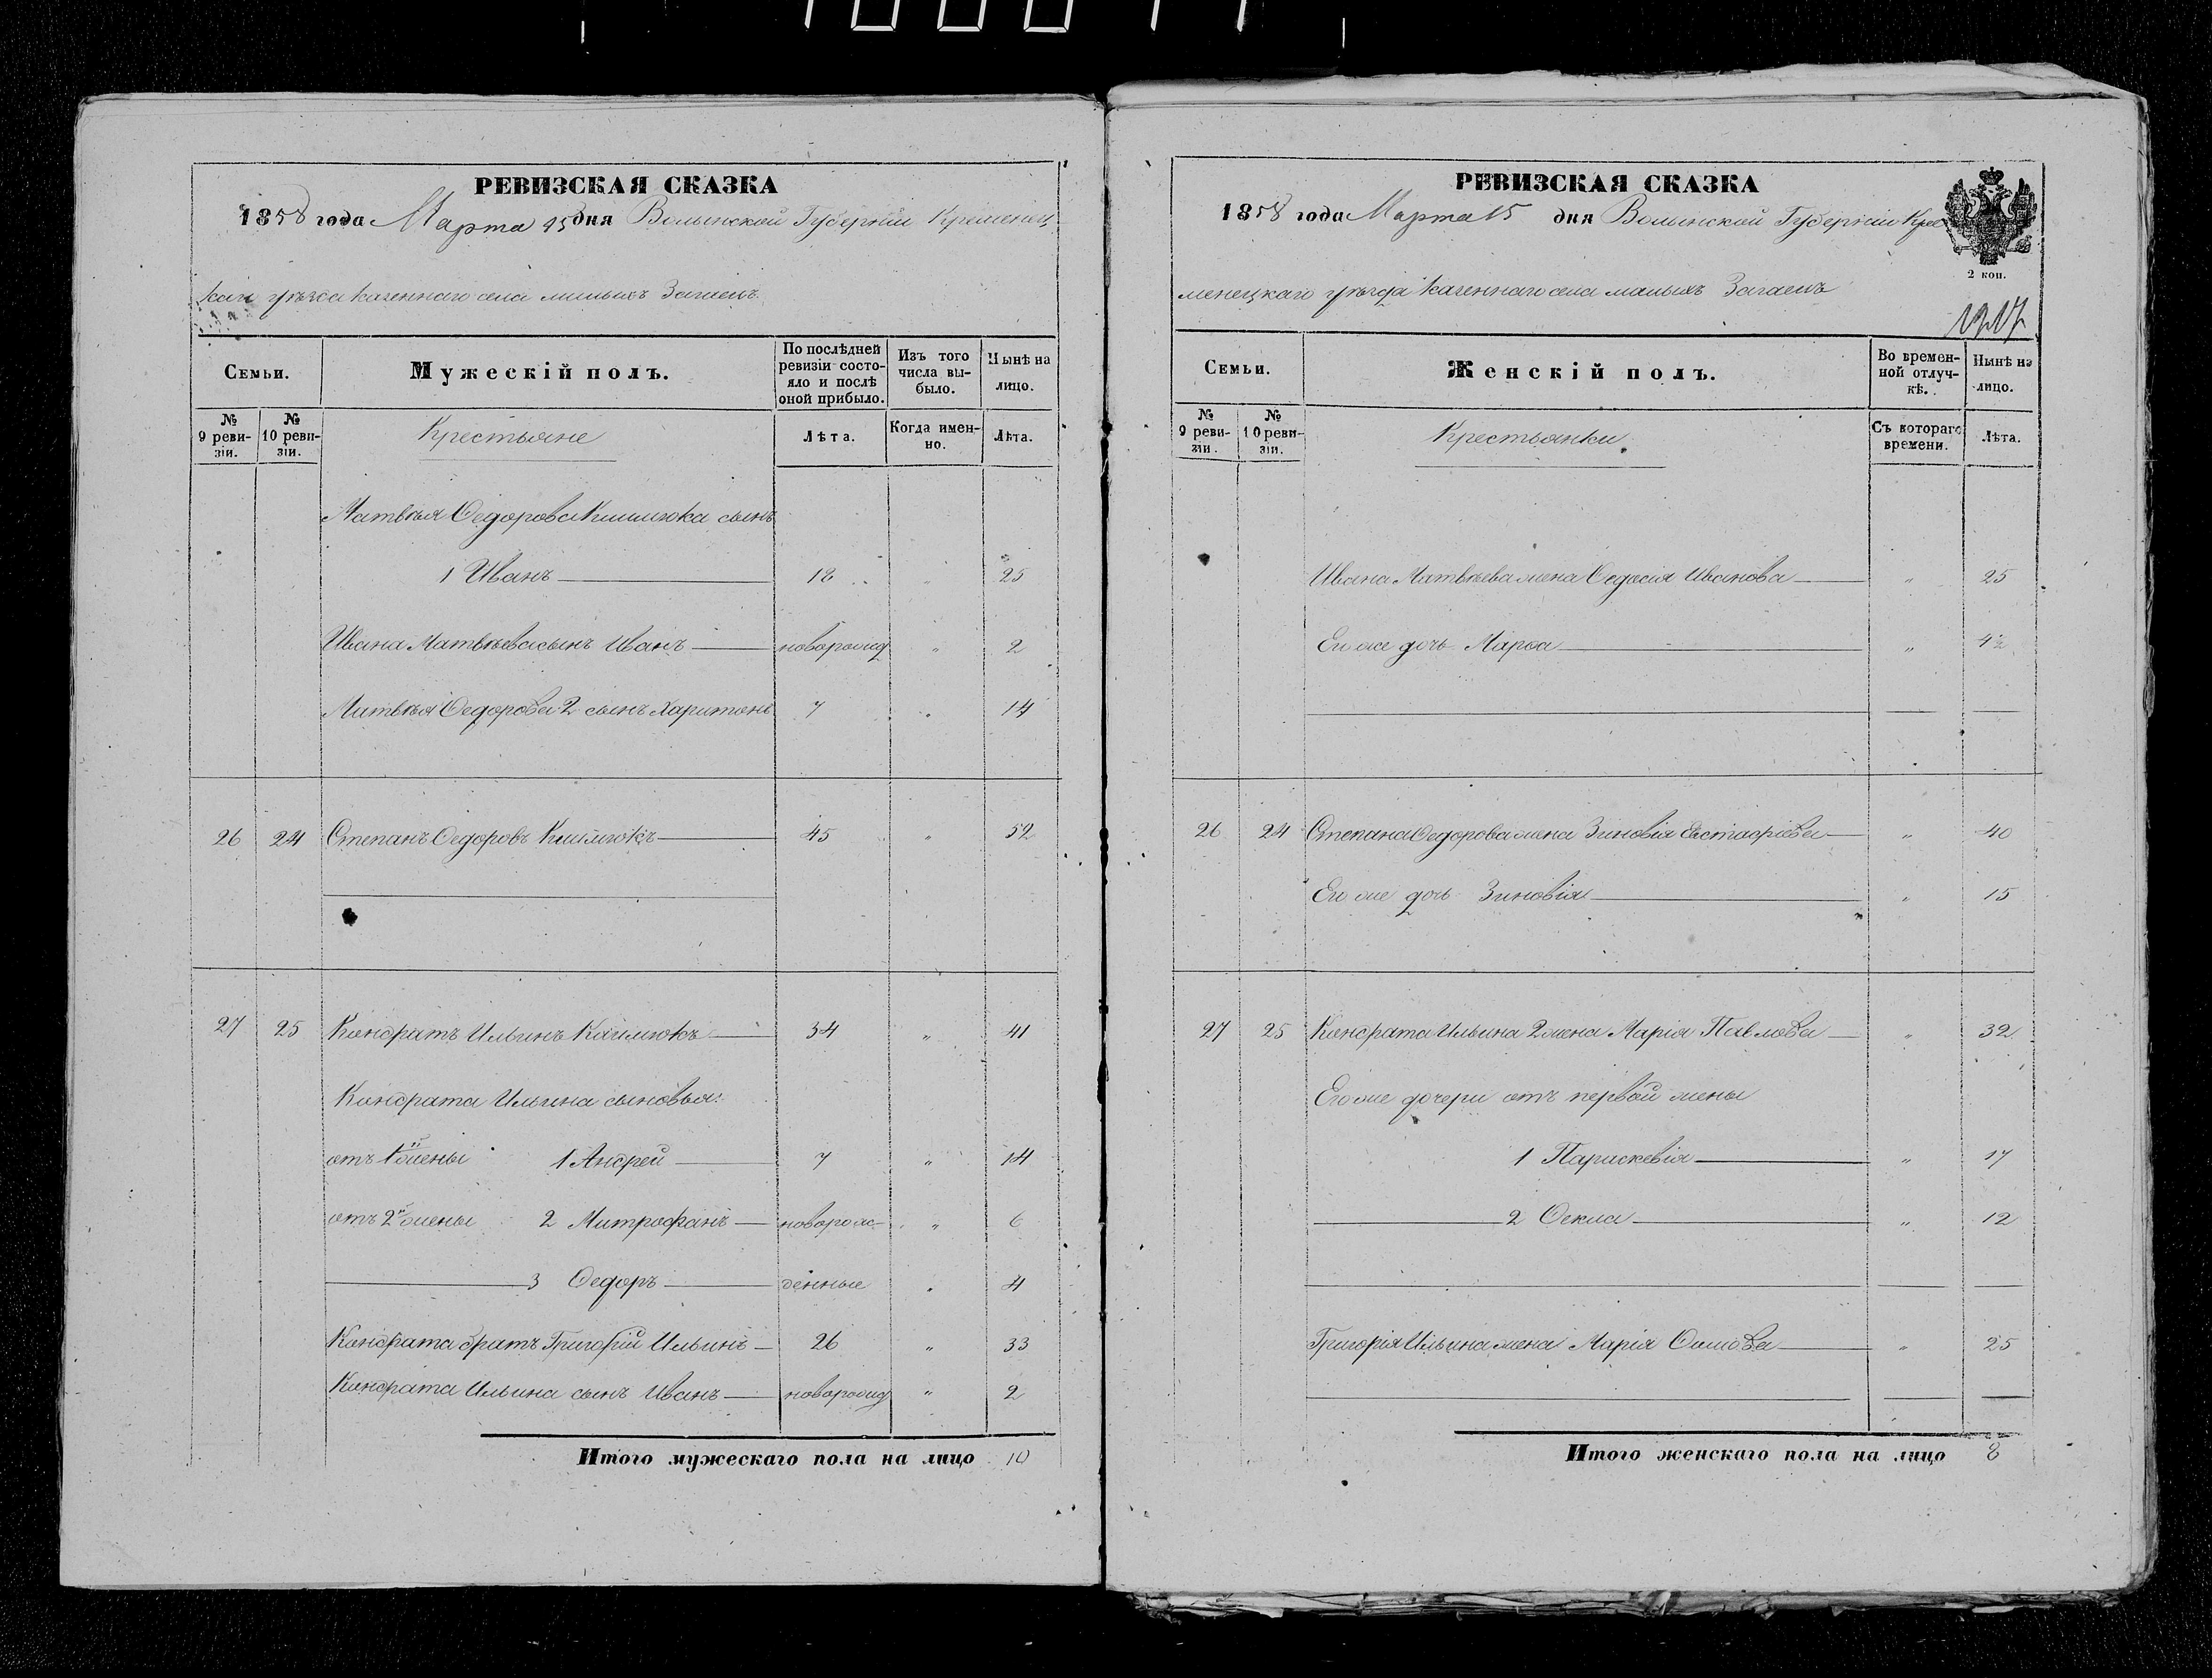 РЕВИЗСКАЯ СКАЗКА
1858 года Марта 15 дня Волынской Губерніи Кременец
каго уѣзда казеннаго села малыхъ Загаецъ
Семьи.
Мужескій полъ.
По послѣдней ревизіи состояло и послѣ оной прибыло.
Изъ того числа выбыло.
Нынѣ на лицо.
№ 9 ревизіи.
№ 10 ревизіи.
Крестьяне
Лѣта.
Когда именно.
Лѣта.
Матвѣя Ѳедорова сынъ
1 Иванъ 18 " 25
Ивана Матвѣева сынъ Иванъ новорожд " 2
Матвѣя Ѳедорова 2 сынъ Харитонъ 7 " 14
26 24 Степанъ Ѳедоровъ 45 " 52
27 25 Кондратъ Ильинъ Каймлюкъ 34 " 41
Кондрата Ильина сыновья:
отъ 1й жены 1 Андрей 7 " 14
отъ 2й жены 2 Митрофанъ новорож- " 6
3 Ѳедоръ денные " 4
Кондрата братъ Григорій Ильинъ 26 " 33
Кондрата Ильина сынъ Иванъ новорожд " 2
Итого мужескаго пола на лицо 10
РЕВИЗСКАЯ СКАЗКА
1858 года Марта 15 дня Волынской Губерніи Кре
2 коп.
менецкаго уѣзда казеннаго села малыхъ Загаецъ
Семьи.
Женскій полъ.
Во временной отлучкѣ.
Нынѣ на лицо.
№ 9 ревизіи.
№ 10 ревизіи.
Крестьянки
Съ котораго времени.
Лѣта.
Ивана Матвѣева жена Ѳедосія Иванова " 25
Его же дочь Марѳа "
26 24 Степана Ѳедорова жена Зиновія Евстафіева " 40
Его же дочь Зиновія " 15
27 25 Кондрата Ильина 2 жена Марія Павлова " 32
Его же дочери отъ первой жены
1 Параскевія " 17
2 Ѳекла " 12
Григорія Ильина жена Марія " 25
Итого женскаго пола на лицо 8